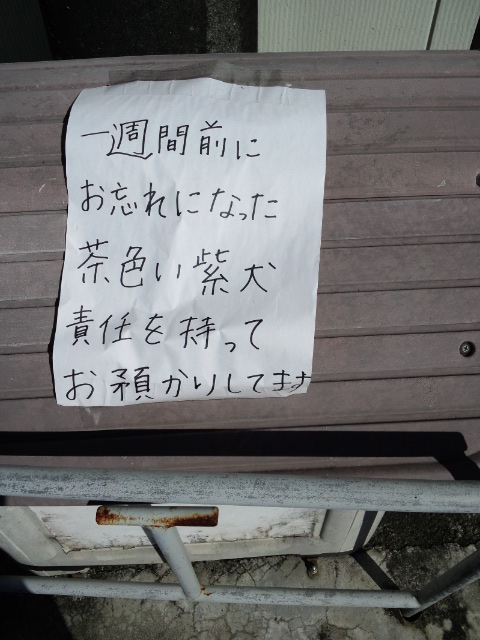 一週間前に
お忘れになった
茶色い紫犬
責任を持って
お預かりしてます